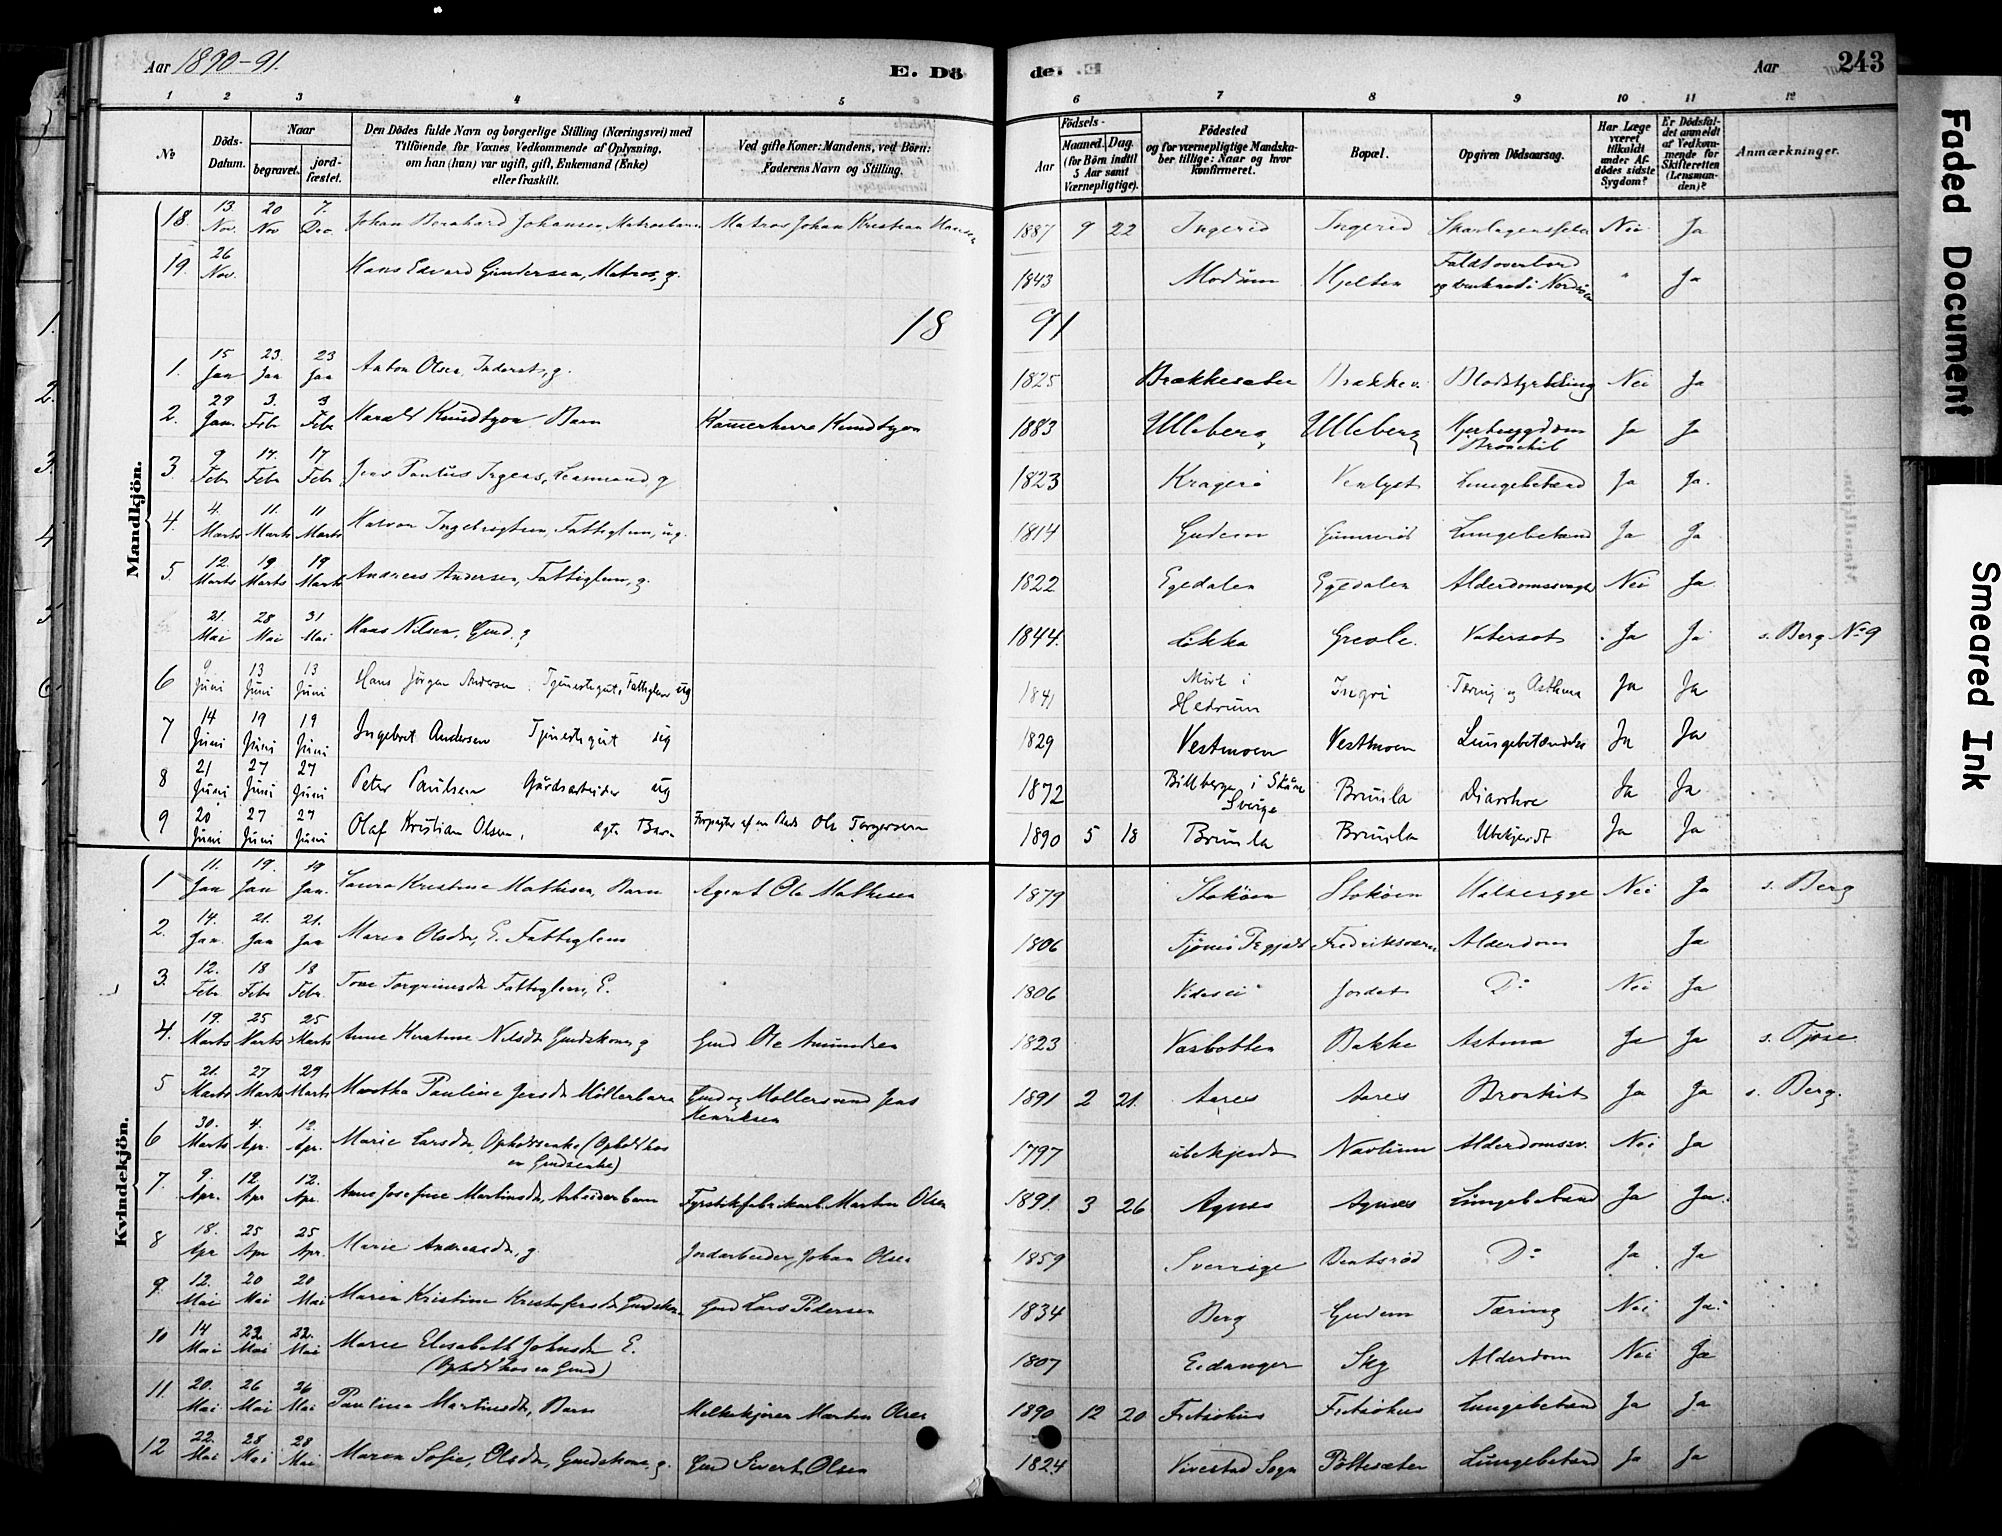 Aar 1890-91.
E. Dö
de. E
Aar
243
1 2 3 4 5 6 7 8 9 10 11 12
No
Döds-Datum.
Naar
begravet. jord-fæstet.
Den Dödes fulde Navn og borgerlige Stilling (Næringsvei) med
Tilföiende for Voxnes Vedkommende af Oplysning,
om han (hun) var ugift, gift, Enkemand (Enke)
eller fraskilt.
Ved gifte Koner: Mandens, ved Börn:
Faderens Navn og Stilling.
Födsels-
Aar
Maaned. Dag.
(for Börn indtil
5 Aar samt
Værnepligtige).
Födested
og for værnepligtige Mandska-
ber tillige: Naar og hvor
konfirmeret.
Bopæl.
Opgiven Dödsaarsag.
Har Læge
været
tilkaldt
under Af-
dödes sidste
Sygdom?
Er Dödsfal-
det anmeldt
af Vedkom-
mende for
Skifteretten
(Lensman-
den)?
Anmærkninger.
Mandkjön.
18. 13. Nov. 20 Nov 7. Dec. Johan Bernhard Johansen, Matrosbarn Matros Johan Kristian Hansen 1887 9 22 Ingerid Ingerid Skarlagensfeber Nei Ja
19. 26 Nov. Hans Edvard Gundersen, Matros, g. 1843 Modum Hjelten Faldt overbord og druknede i Nordsöen " Ja
18 91
1. 15 Jan 23. Jan 23 Jan Anton Olsen, Inderst, g. 1825 Brækkesæter Brække Blodstyrtning Nei Ja
2. 29 Jan. 3. Feb 3 Febr Harald Knudtzon Barn Kamerherre Knudtzon 1883 Ulleberg Ulleberg Bronchit Ja Ja
3 9 Feb 17. Feb 17 Feb Jens Paulus Irgens, Lensmand, g 1823 Kragerö Venlyst Lungebetænd Ja Ja.
4. 4. Marts 11. Marts 11 Marts Halvor Ingebrigtsen, Fattiglem, ug. 1814 Gudem Gunneröd Lungebetænd Ja Ja
5. 12. Marts 19 Marts 19 Marts Andreas Andersen, Fattiglem, g. 1822 Egedalen Egedalen Alderdomssvaghed Nei Ja
21. Mai 28 Mai 31 Mai Hans Nilsen, Gmd. g 1844. Grevle. Vatersot Ja Ja s. Berg No 9
6 9 Juni 13 Juni 13 Juni Hans Jörgen Andersen Tjenestegut, Fattiglem ug 1841 Mörk i Hedrum Ingri Tæring og Asthma Ja Ja
7 14 Juni 19 Juni 19 Juni Ingebret Andersen Tjenestegut ug 1829 Vestmoen Vestmoen Lungebetændelse Ja Ja
8 21 Juni 27 Juni 27 Juni Peter Paulsen Gårdsarbeider ug 1872 Billberga i Skåne Sverige Brunla Diarrhoe Ja Ja
9 20 Juni 27 Juni 27 Juni Olaf Kristian Olsen, ægte Barn Forpagter af en Plads Ole Torgersen 1890 5 18 Brunla Brunla Ubekjendt Ja Ja
Kvindekjön.
1 11. Jan 19. Jan 19 Jan. Laura Kristine Mathisen, Barn Agent Ole Mathisen 1879 Stoköen Stoköen Halssyge Nei Ja s. Berg
2. 14. Jan. 21. Jan 21. Jan Maren Olsdr, E. Fattiglem 1806 Tjömö Prgjæld Fredriksværn Alderdom Ja
3. 12. Febr. 18 Feb 18 Febr. Tone Torgrimsdr Fattiglem, E. 1806 Videsei Jordet Do Nei Ja
4. 19. Marts 25 Marts 25 Marts Anne Kirstine Nilsdr Gmdskone, g Gmd Ole Amundsen 1823 Vasbotten Bakke Astma Ja Ja s. Tjose
5 21. Marts 27 Marts 29 Marts Martha Pauline Jensdr Möllerbarn Gmd og Möllersvend Jens Henriksen 1891 2 21 Aares Aares Bronkit Ja Ja s. Berg.
6 30. Marts 4. Apr. 12. Apr. Marie Larsdr, Opholdsenke (Ophold hos en Gmdsenke) 1797 ubekjendt Navlum Alderdomssv. Nei Ja
7. 9. Apr. 12 Apr 12. Apr. Anne Josefine Martinsdr, Arbeiderbarn Fyrstikfabrikarb. Martin Olsen 1891. 3 26 Agnes Agnes Lungebetænd Ja Ja.
8 18. Apr 25 Apr 25 Apr. Marie Andreasdr, g. Jordarbeider, Johan Olsen 1859 Sverrige Bentsröd Do Ja Ja
9. 12. Mai 20 Mai 20 Mai Maren Kristine Kristofersdr Gmdskone Gmd Lars Pedersen 1834 Berg Gudem Tæring Nei Ja.
10 14 Mai 22. Mai 22. Mai Maren Elisabeth Johnsdr E. (Ophold hos en Gmd) 1807 Eidanger Sky Alderdom Nei Ja
11. 20. Mai 26 Mai 26 Mai Pauline Martinsdr, Barn Melkekjörer Martin Olsen 1890 12 20 Fritsöhus Fritsöhus Lungebetænd Ja Ja
12 22. Mai 28 Mai 28 Mai Maren Sofie, Olsdr, Gmdskone, g. Gmd Sivert Olsen 1824 Vivestad Sogn Pöttesæter Lungebetænd Ja Ja
Faded Document
Smeared Ink